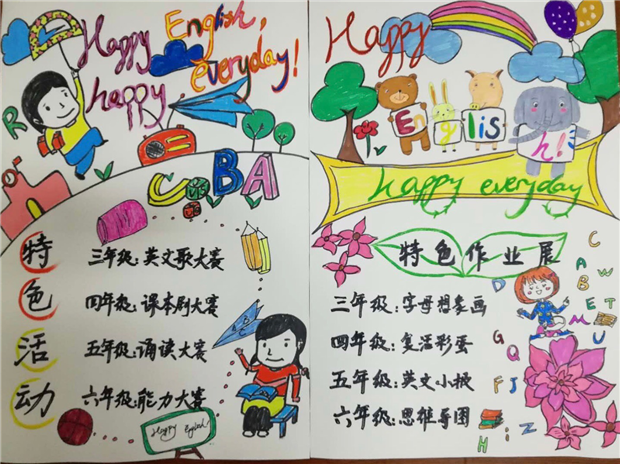 Happy English,
happy everyday!
R
C B A
特色活动
三年级:英文歌大赛
四年级:课本剧大赛
五年级:诵读大赛
六年级:能力大赛
Happy English!
Happy
English!
happy everyday
特色作业展
三年级:字母想象画
四年级:复活彩蛋
五年级:英文小报
六年级:思维导图
C
A W
D B E T
M
G Q U
F J
H i Z